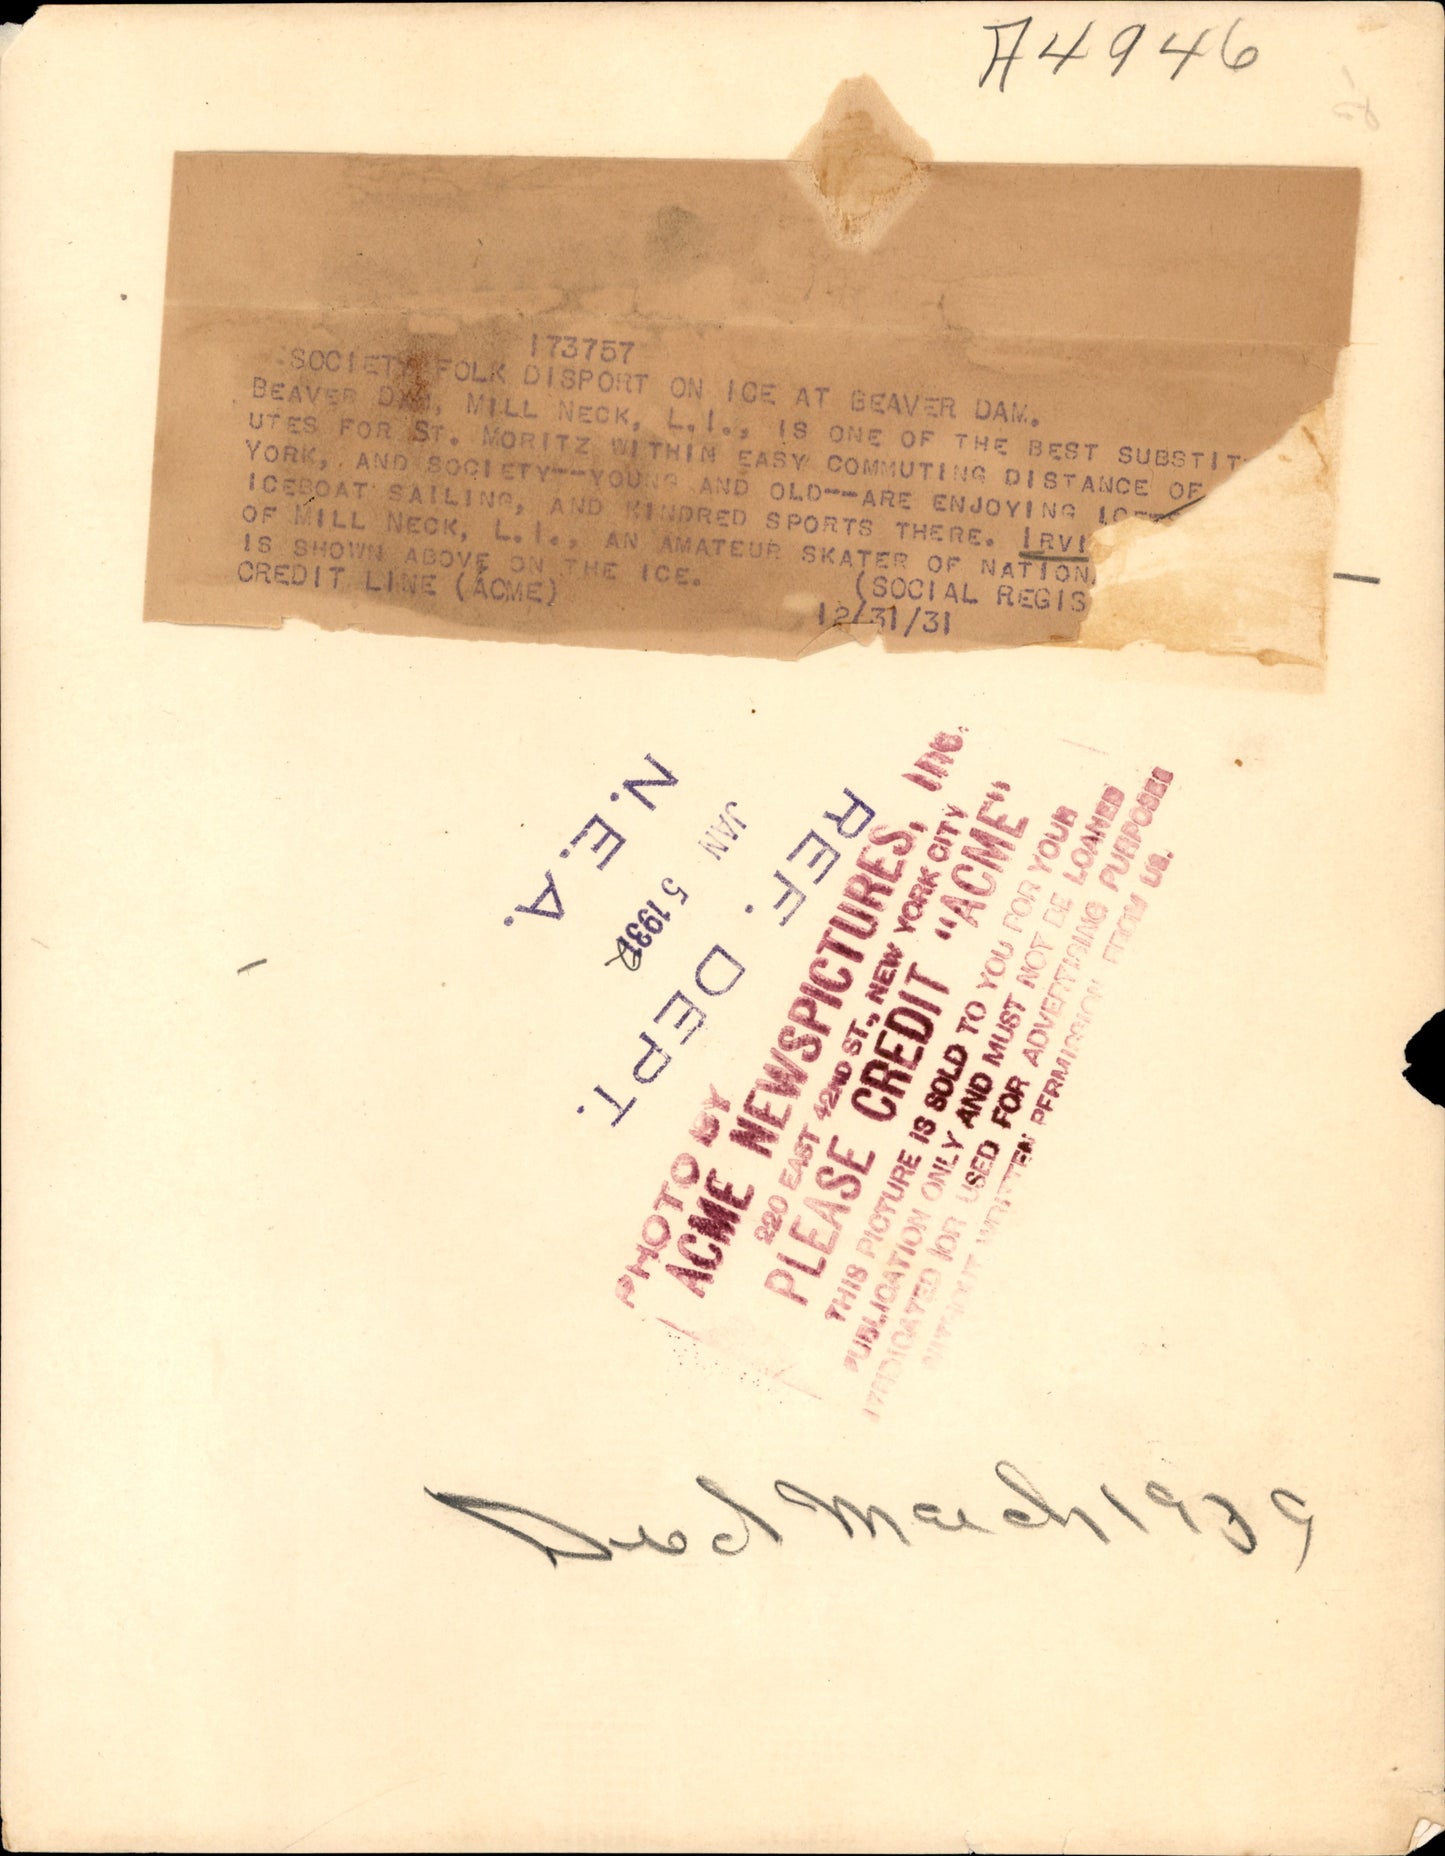 A4946
173757
SOCIETY FOLK DISPORT ON ICE AT BEAVER DAM.
BEAVER DAM, MILL NECK, L.I., IS ONE OF THE BEST SUBSTIT
UTES FOR ST. MORITZ WITHIN EASY COMMUTING DISTANCE OF
YORK, AND SOCIETY--YOUNG AND OLD--ARE ENJOYING
ICEBOAT SAILING, AND KINDRED SPORTS THERE. IRVI
OF MILL NECK, L.I., AN AMATEUR SKATER OF NATION
IS SHOWN ABOVE ON THE ICE. (SOCIAL REGIS
CREDIT LINE (ACME) 12/31/31
N.E.A.
JAN 5 1932
REF. DEPT.
PHOTO BY
ACME NEWSPICTURES, INC.
220 EAST 42ND ST., NEW YORK CITY
PLEASE CREDIT "ACME"
THIS PICTURE IS SOLD TO YOU FOR YOUR
PUBLICATION ONLY AND MUST NOT BE LOANED
SYNDICATED OR USED FOR ADVERTISING PURPOSES
WITHOUT WRITTEN PERMISSION FROM US.
March 1939